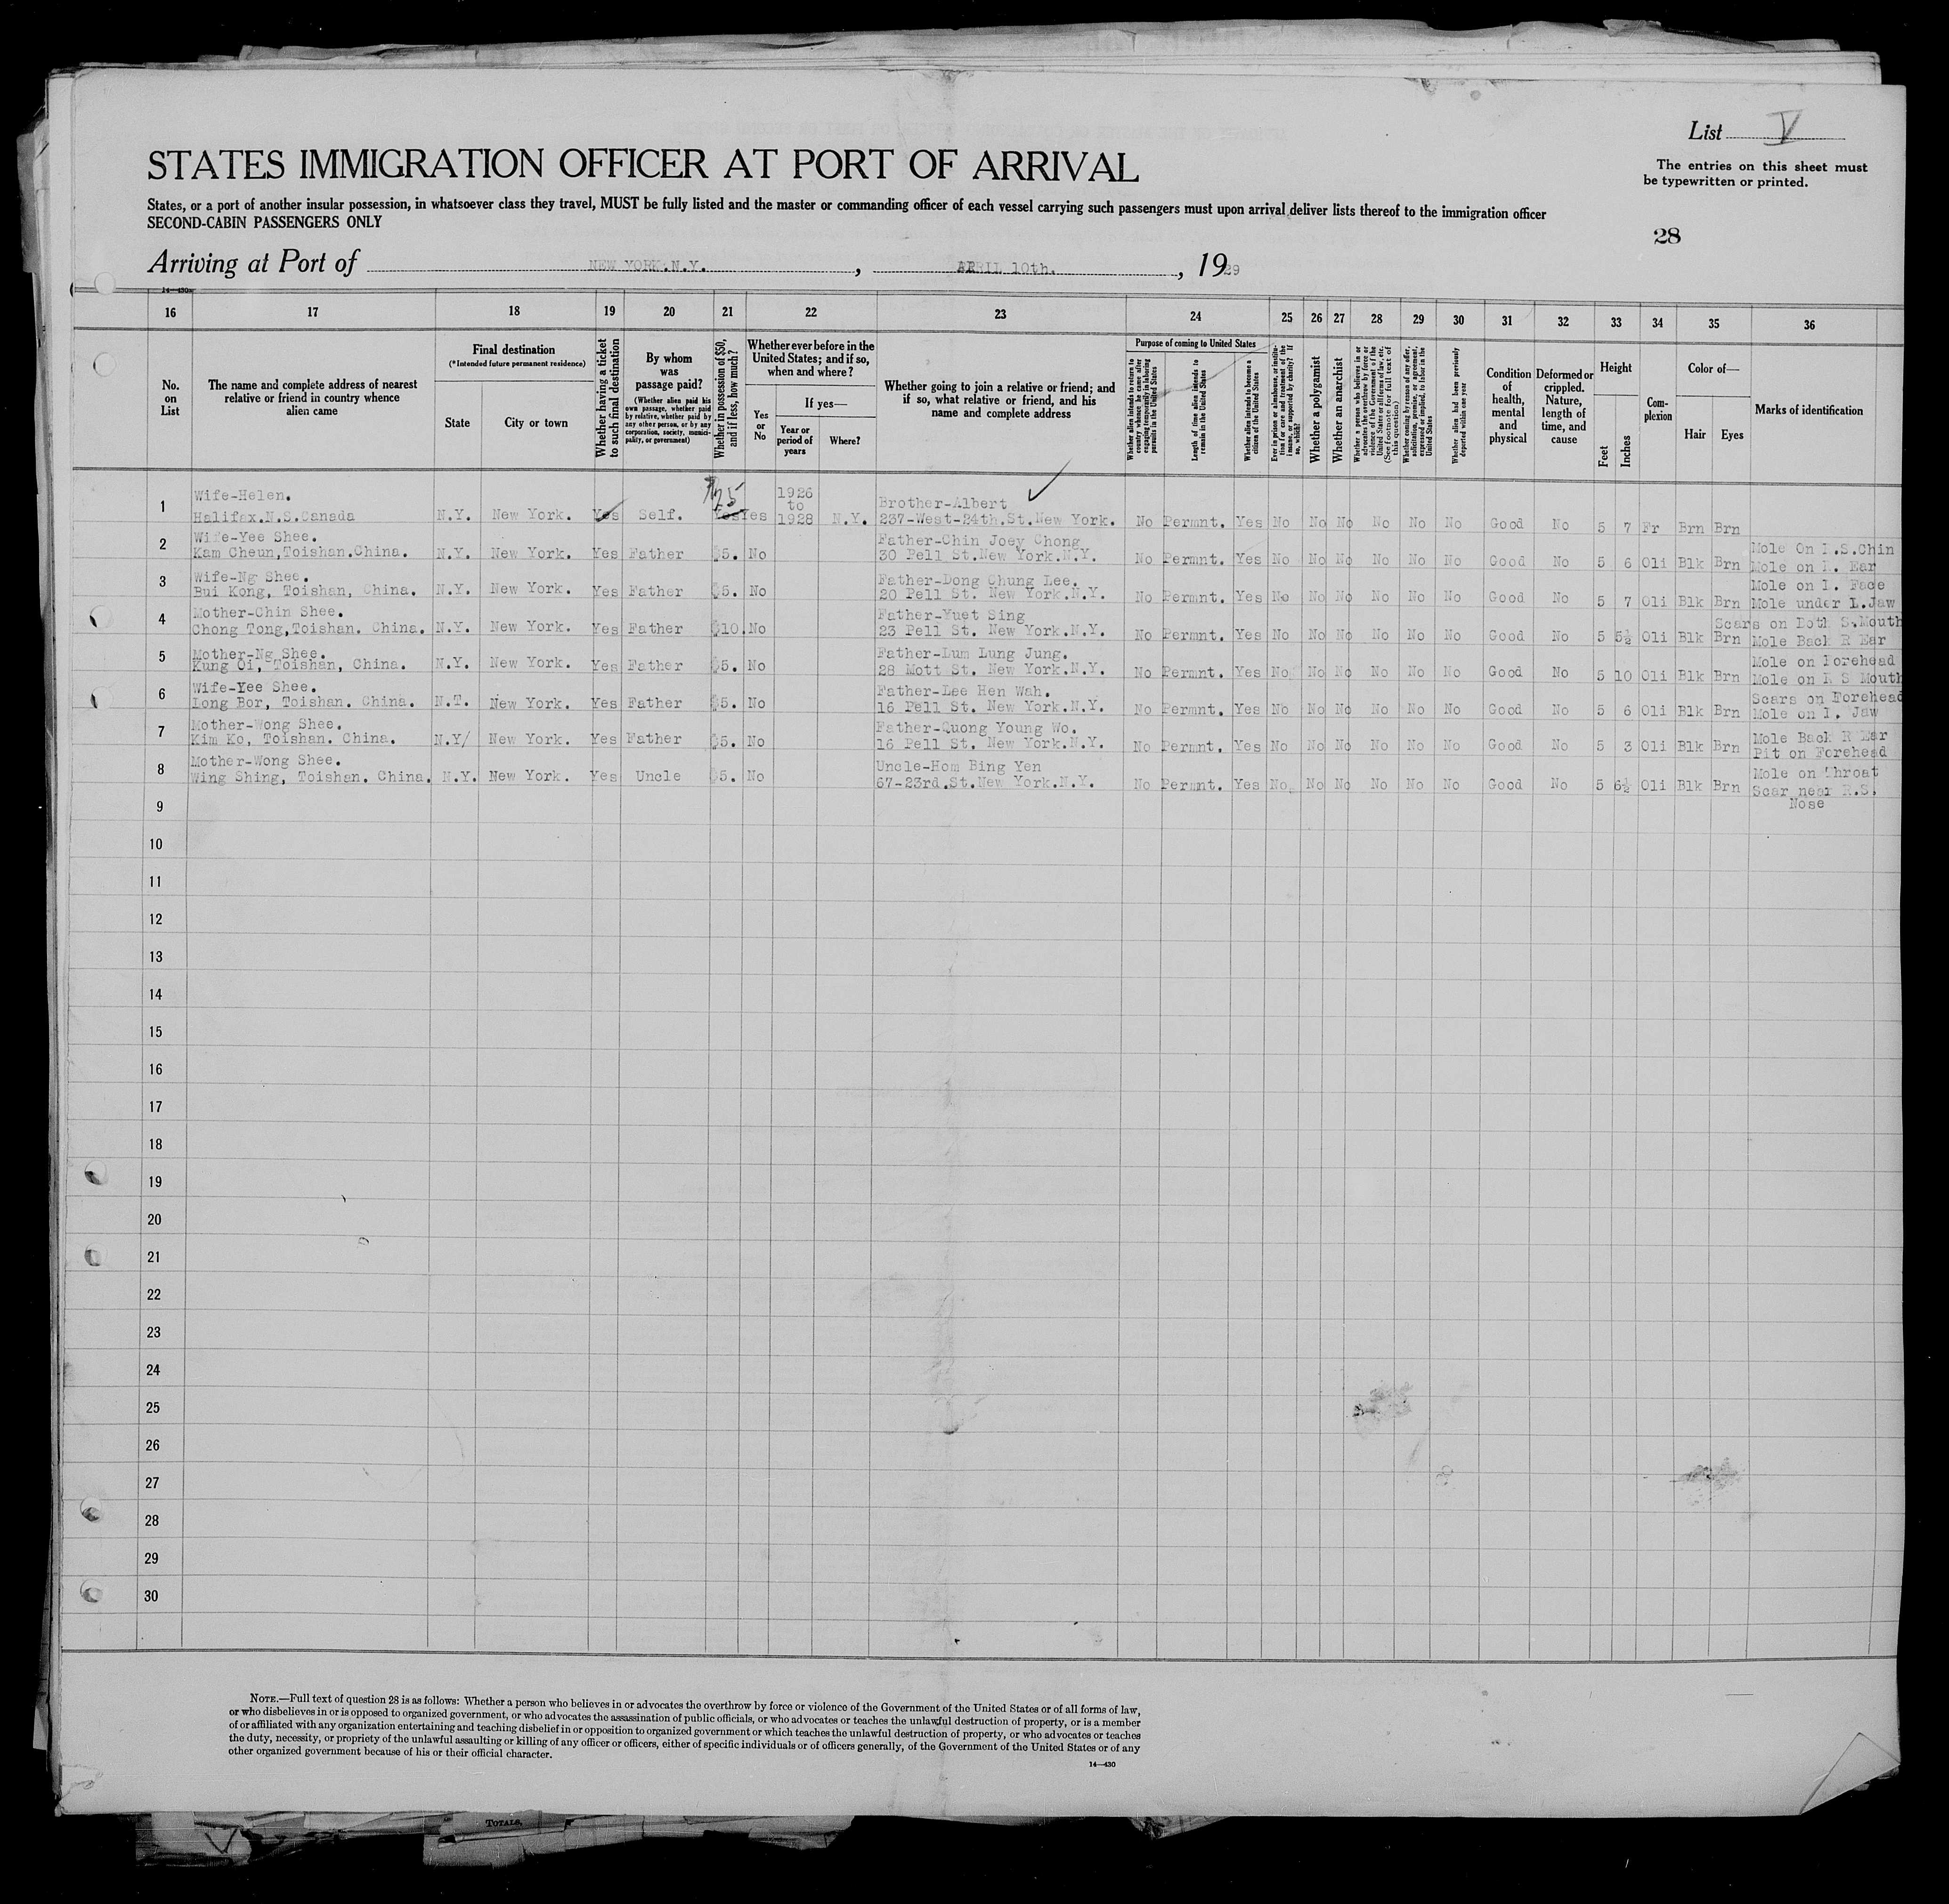 List V
The entries on this sheet must
be typewritten or printed.
STATES IMMIGRATION OFFICER AT PORT OF ARRIVAL
States, or a port of another insular possession, in whatsoever class they travel, MUST be fully listed and the master or commanding officer of each vessel carrying such passengers must upon arrival deliver lists thereof to the immigration officer
SECOND-CABIN PASSENGERS ONLY
28
Arriving at Port of NEW YORK.N.Y. , APRIL 10th. , 1929
14—430
16 17 18 19 20 21 22 23 24 25 26 27 28 29 30 31 32 33 34 35 36
No. on List
The name and complete address of nearest relative or friend in country whence alien came
Final destination
(*Intended future permanent residence)
State
City or town
Whether having a ticket to such final destination
By whom was passage paid?
(Whether alien paid his own passage, whether paid by relative, whether paid by any other person, or by any corporation, society, municipality, or government)
Whether in possession of $50, and if less, how much?
Whether ever before in the United States; and if so, when and where?
Yes or No
If yes—
Year or period of years
Where?
Whether going to join a relative or friend; and if so, what relative or friend, and his name and complete address
Purpose of coming to United States
Whether alien intends to return to country whence he came after engaging temporarily in laboring pursuits in the United States
Length of time alien intends to remain in the United States
Whether alien intends to become a citizen of the United States
Ever in prison or almshouse, or institution for care and treatment of the insane, or supported by charity? If so, which?
Whether a polygamist
Whether an anarchist
Whether a person who believes in or advocates the overthrow by force or violence of the Government of the United States or all forms of law, etc. (See footnote for full text of this question)
Whether coming by reason of any offer, solicitation, promise, or agreement, expressed or implied, to labor in the United States
Whether alien had been previously deported within one year
Condition of health, mental and physical
Deformed or crippled. Nature, length of time, and cause
Height
Feet
Inches
Complexion
Color of—
Hair
Eyes
Marks of identification
1 Wife-Helen. Halifax.N.S.Canada N.Y. New York. Yes Self. 25 Yes Yes 1926 to 1928 N.Y. Brother-Albert 237-West-24th.St.New York. No Permnt. Yes No No No No No No Good No 5 7 Fr Brn Brn
2 Wife-Yee Shee. Kam Cheun,Toishan.China. N.Y. New York. Yes Father $5. No Father-Chin Joey Chong 30 Pell St.New York.N.Y. No Permnt. Yes No No No No No No Good No 5 6 Oli Blk Brn Mole On L.S.Chin Mole on L. Ear
3 Wife-Ng Shee. Bui Kong, Toishan, China. N.Y. New York. Yes Father $5. No Father-Dong Chung Lee. 20 Pell St. New York.N.Y. No Permnt. Yes No No No No No No Good No 5 7 Oli Blk Brn Mole on L. Face Mole under L.Jaw
4 Mother-Chin Shee. Chong Tong,Toishan. China. N.Y. New York. Yes Father $10. No Father-Yuet Sing 23 Pell St. New York.N.Y. No Permnt. Yes No No No No No No Good No 5 5½ Oli Blk Brn Scars on Both S.Mouth Mole Back R Ear
5 Mother-Ng Shee. Kung Oi, Toishan, China. N.Y. New York. Yes Father $5. No Father-Lum Lung Jung. 28 Mott St. New York.N.Y. No Permnt. Yes No No No No No No Good No 5 10 Oli Blk Brn Mole on Forehead Mole on L S Mouth
6 Wife-Yee Shee. Long Bor, Toishan. China. N.T. New York. Yes Father $5. No Father-Lee Hen Wah. 16 Pell St. New York.N.Y. No Permnt. Yes No No No No No No Good No 5 6 Oli Blk Brn Scars on Forehead Mole on L. Jaw
7 Mother-Wong Shee. Kim Ko, Toishan. China. N.Y/ New York. Yes Father $5. No Father-Quong Young Wo. 16 Pell St. New York.N.Y. No Permnt. Yes No No No No No No Good No 5 3 Oli Blk Brn Mole Back R Ear Pit on Forehead
8 Mother-Wong Shee. Wing Shing, Toishan. China. N.Y. New York. Yes Uncle $5. No Uncle-Hom Bing Yen 67-23rd.St.New York.N.Y. No Permnt. Yes No No No No No No Good No 5 6½ Oli Blk Brn Mole on Throat Scar near R.S. Nose
9
10
11
12
13
14
15
16
17
18
19
20
21
22
23
24
25
26
27
28
29
30
NOTE.—Full text of question 28 is as follows: Whether a person who believes in or advocates the overthrow by force or violence of the Government of the United States or of all forms of law,
or who disbelieves in or is opposed to organized government, or who advocates the assassination of public officials, or who advocates or teaches the unlawful destruction of property, or is a member
of or affiliated with any organization entertaining and teaching disbelief in or opposition to organized government or which teaches the unlawful destruction of property, or who advocates or teaches
the duty, necessity, or propriety of the unlawful assaulting or killing of any officer or officers, either of specific individuals or of officers generally, of the Government of the United States or of any
other organized government because of his or their official character.
14—430
TOTALS.